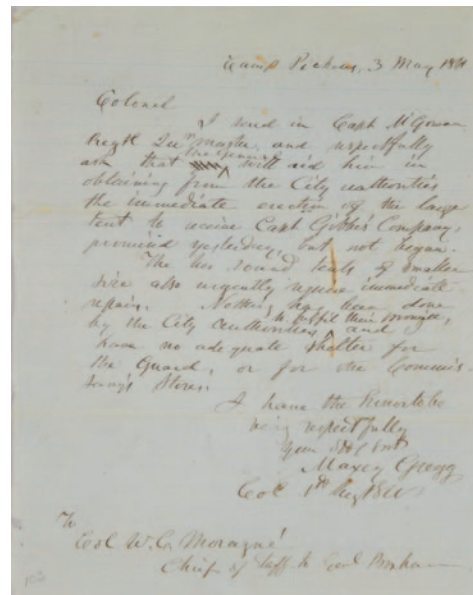 Camp Pickens, 3 May 1861
Colonel
I send in Capt McGowan
Regtl Qur master, and respectfully
ask that the General will aid him in
obtaining from the City authorities
the immediate erection of the large
tent to receive Capt Gibbs's Company,
promised yesterday, but not began.
The two round tents of smaller
size also urgently require immediate
repair. Nothing has been done
by the City authorities to fulfil their promises, and
have no adequate shelter for
the Guard, or for the Commis-
sary's Stores.
I have the honor to be
very respectfully
Your Obt Svt
Maxcy Gregg
Col 1st Regt S.C.V.
To
Col W.C. Moragné
Chief of Staff to Genl Bonham